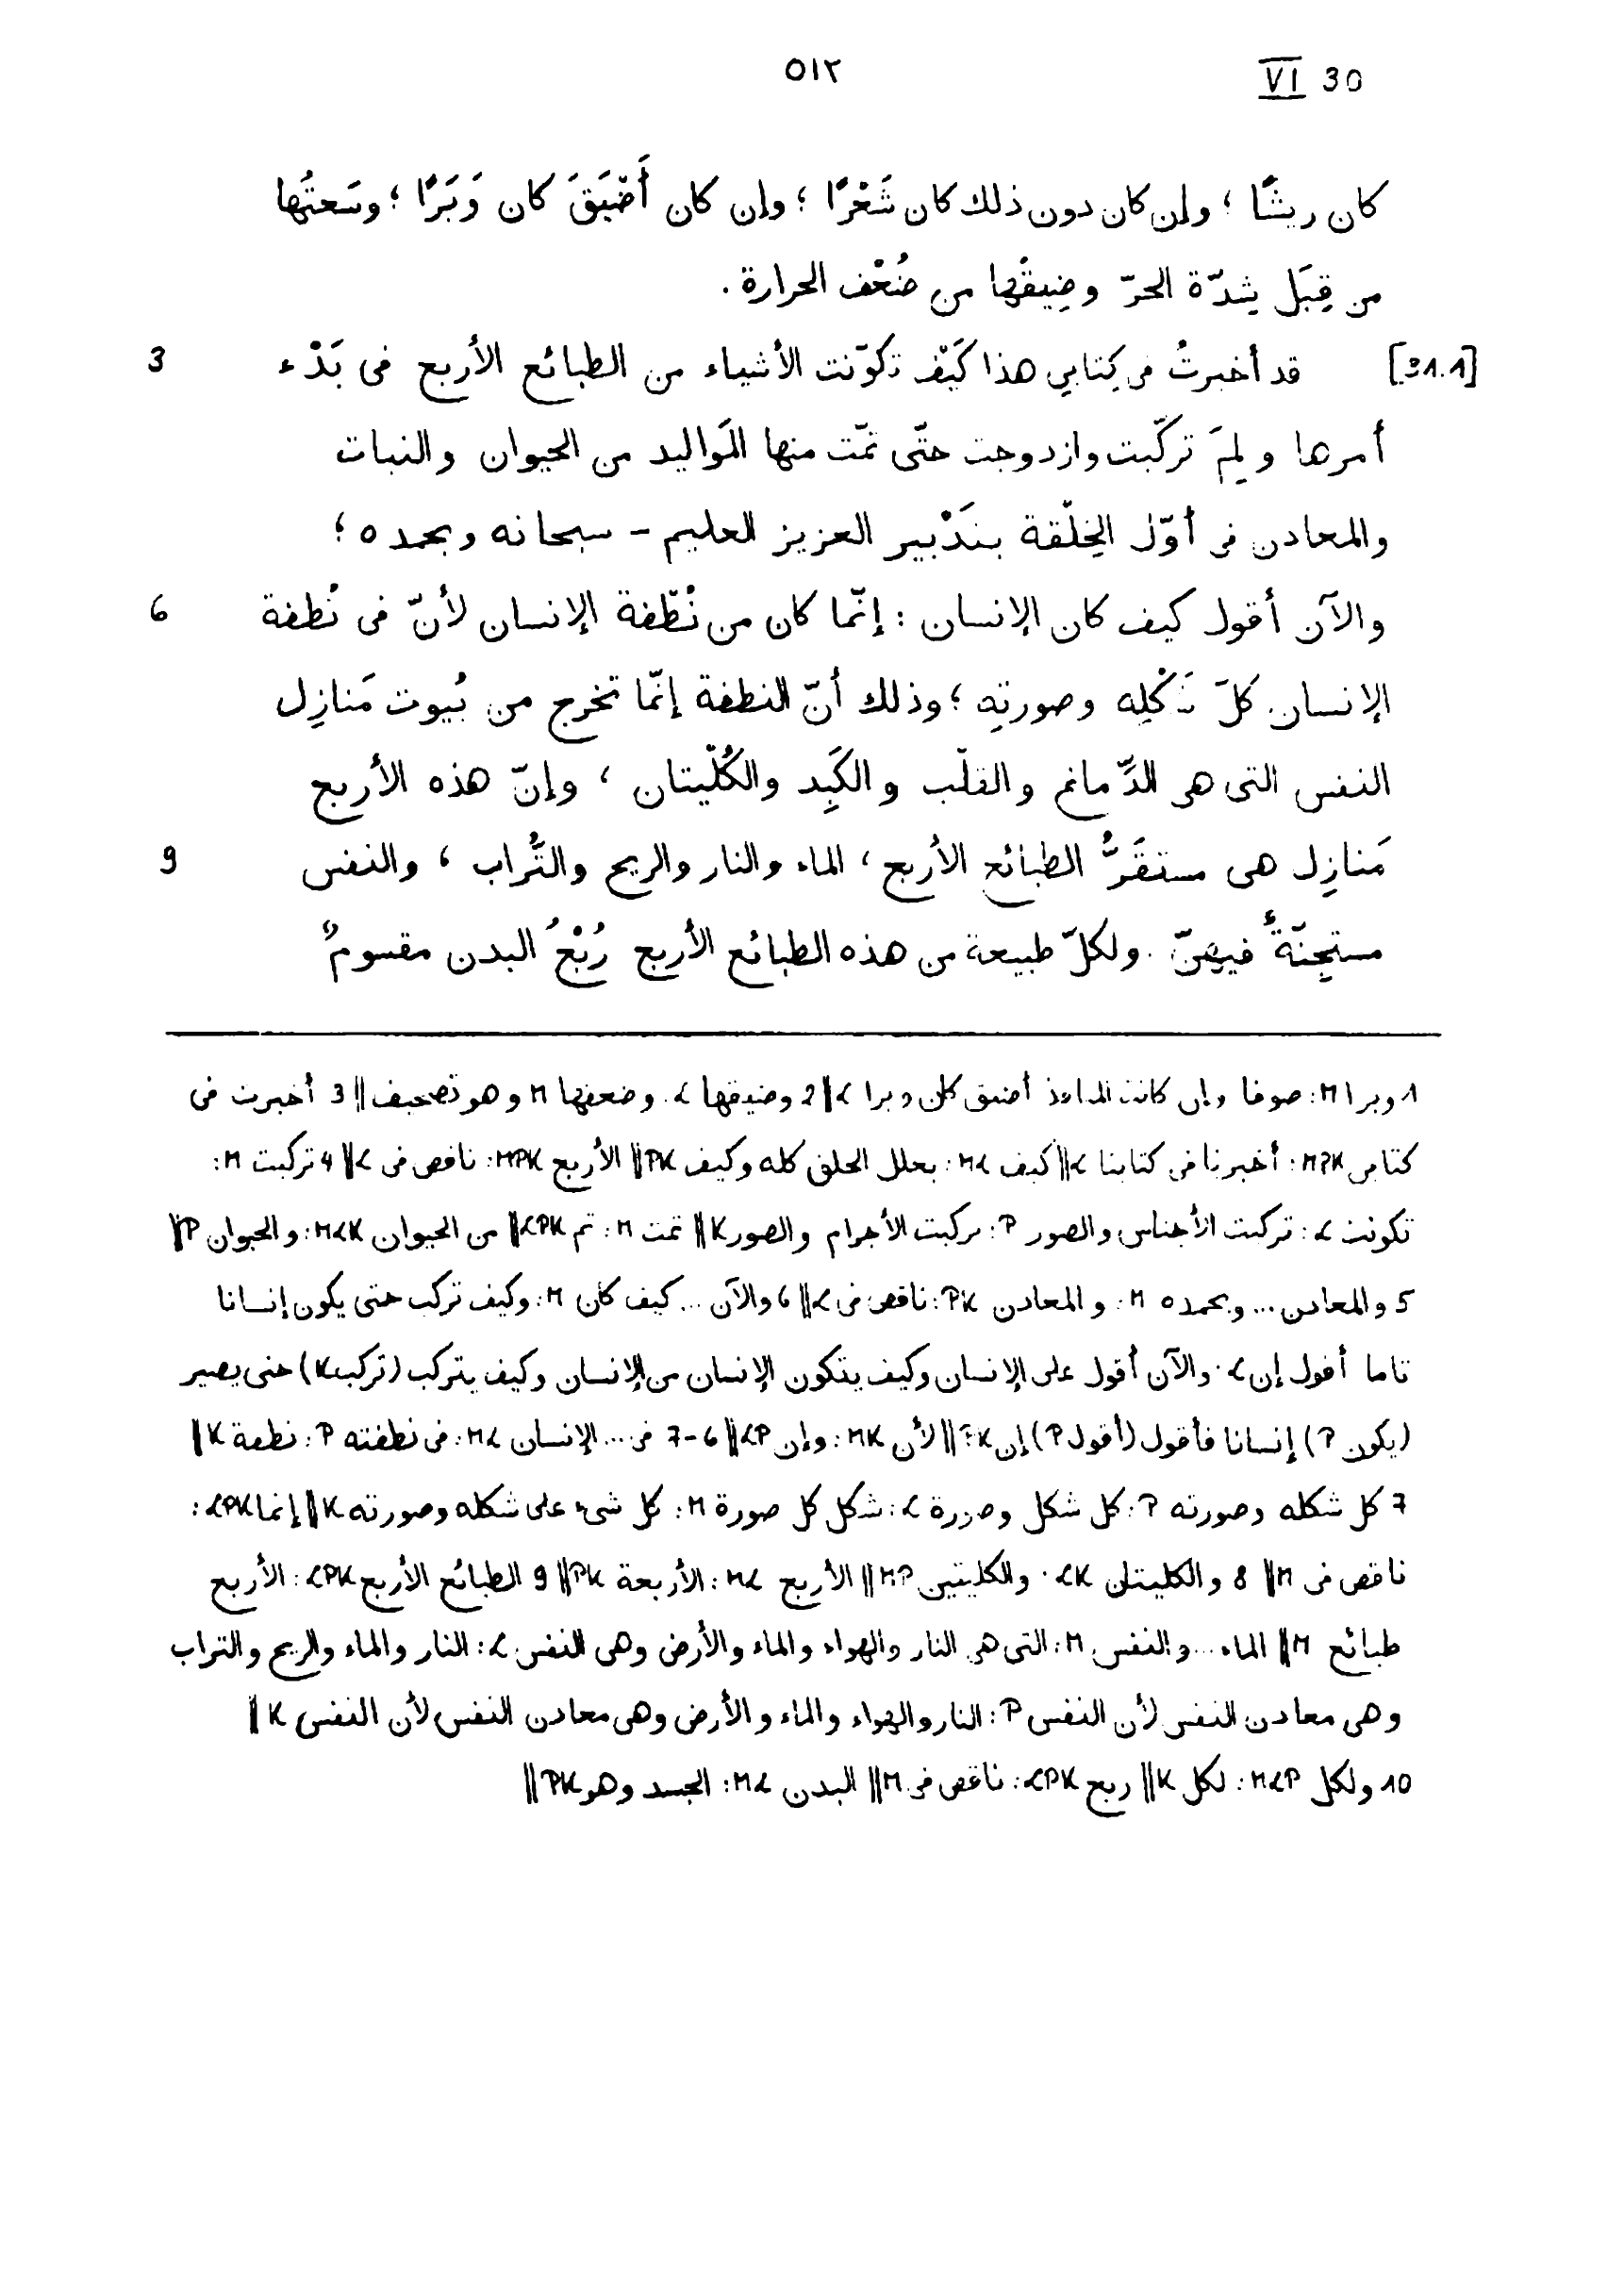 ٥١٢
VI 30
كان ريشًا ؛ وإن كان دون ذلك كان شَعْرًا ؛ وإن كان أَضْيَقَ كان وَبَرًا ؛ وسَعتُها
من قِبَل شِدّة الحرّ وضِيقُها من ضُعْف الحرارة .
[31.1] قد أخبرتُ فى كِتابي هذا كَيْف تكوّنت الأشياء من الطبائع الأربع فى بَدْء 3
أمرها ولِمَ تركّبت وازدوجت حتّى تمّت منها المَواليد من الحيوان والنبات
والمعادن فى أوّل الخِلْقة بتَدْبير العزيز العليم – سبحانه وبحمده ؛
والآن أقول كيف كان الإنسان : إنّما كان من نُطْفة الإنسان لأنّ فى نُطفة 6
الإنسان كلّ شَكْلِه وصورتِه ؛ وذلك أنّ النطفة إنّما تخرج من بُيوت مَنازِل
النفس التى هى الدِّماغ والقلْب والكَبِد والكُلْيتان ، وإنّ هذه الأربع
مَنازِل هى مستقَرُّ الطبائع الأربع ، الماء والنار والريح والتُّراب ، والنفس 9
مستجِنّةٌ فيهنّ . ولكلّ طبيعة من هذه الطبائع الأربع رُبْعُ البدن مقسومٌ
1 وبرا M : صوفا وإن كانت المنافذ أضيق كان وبرا L || 2 وضيقها L : وضعفها M وهو تصحيف || 3 أخبرت فى
كتابى MPK : أخبرنا فى كتابنا L || كيف ML : بعلل الخلق كله وكيف PK || الأربع MPK : ناقص فى L || 4 تركبت M :
تكونت L : تركبت الأجناس والصور P : تركبت الأجرام والصور K || تمت M : تم LPK || من الحيوان MLK : والحيوان P ||
5 والمعادن ... وبحمده M : والمعادن PK : ناقص فى L || 6 والآن ... كيف كان M : وكيف تركب حتى يكون إنسانا
تاما أقول إن L : والآن أقول على الإنسان وكيف يتكون الإنسان من الإنسان وكيف يتركب (تركب K) حتى يصير
(يكون P) إنسانا فأقول (أقول P) إن PK || لأن MK : وإن LP || 6-7 فى ... الإنسان ML : فى نطفته P : نطفة K ||
7 كل شكله وصورته P : كل شكل وصورة L : شكل كل صورة M : كل شىء على شكله وصورته K || إنما LPK :
ناقص فى M || 8 والكليتان LK : والكليتين MP || الأربع ML : الأربعة PK || 9 الطبائع الأربع LPK : الأربع
طبائع M || الماء ... والنفس M : التى هى النار والهواء والماء والأرض وهى النفس L : النار والماء والريح والتراب
وهى معادن النفس لأن النفس P : النار والهواء والماء والأرض وهى معادن النفس لأن النفس K ||
10 ولكل MLP : لكل K || ربع LPK : ناقص فى M || البدن ML : الجسد وهو PK ||